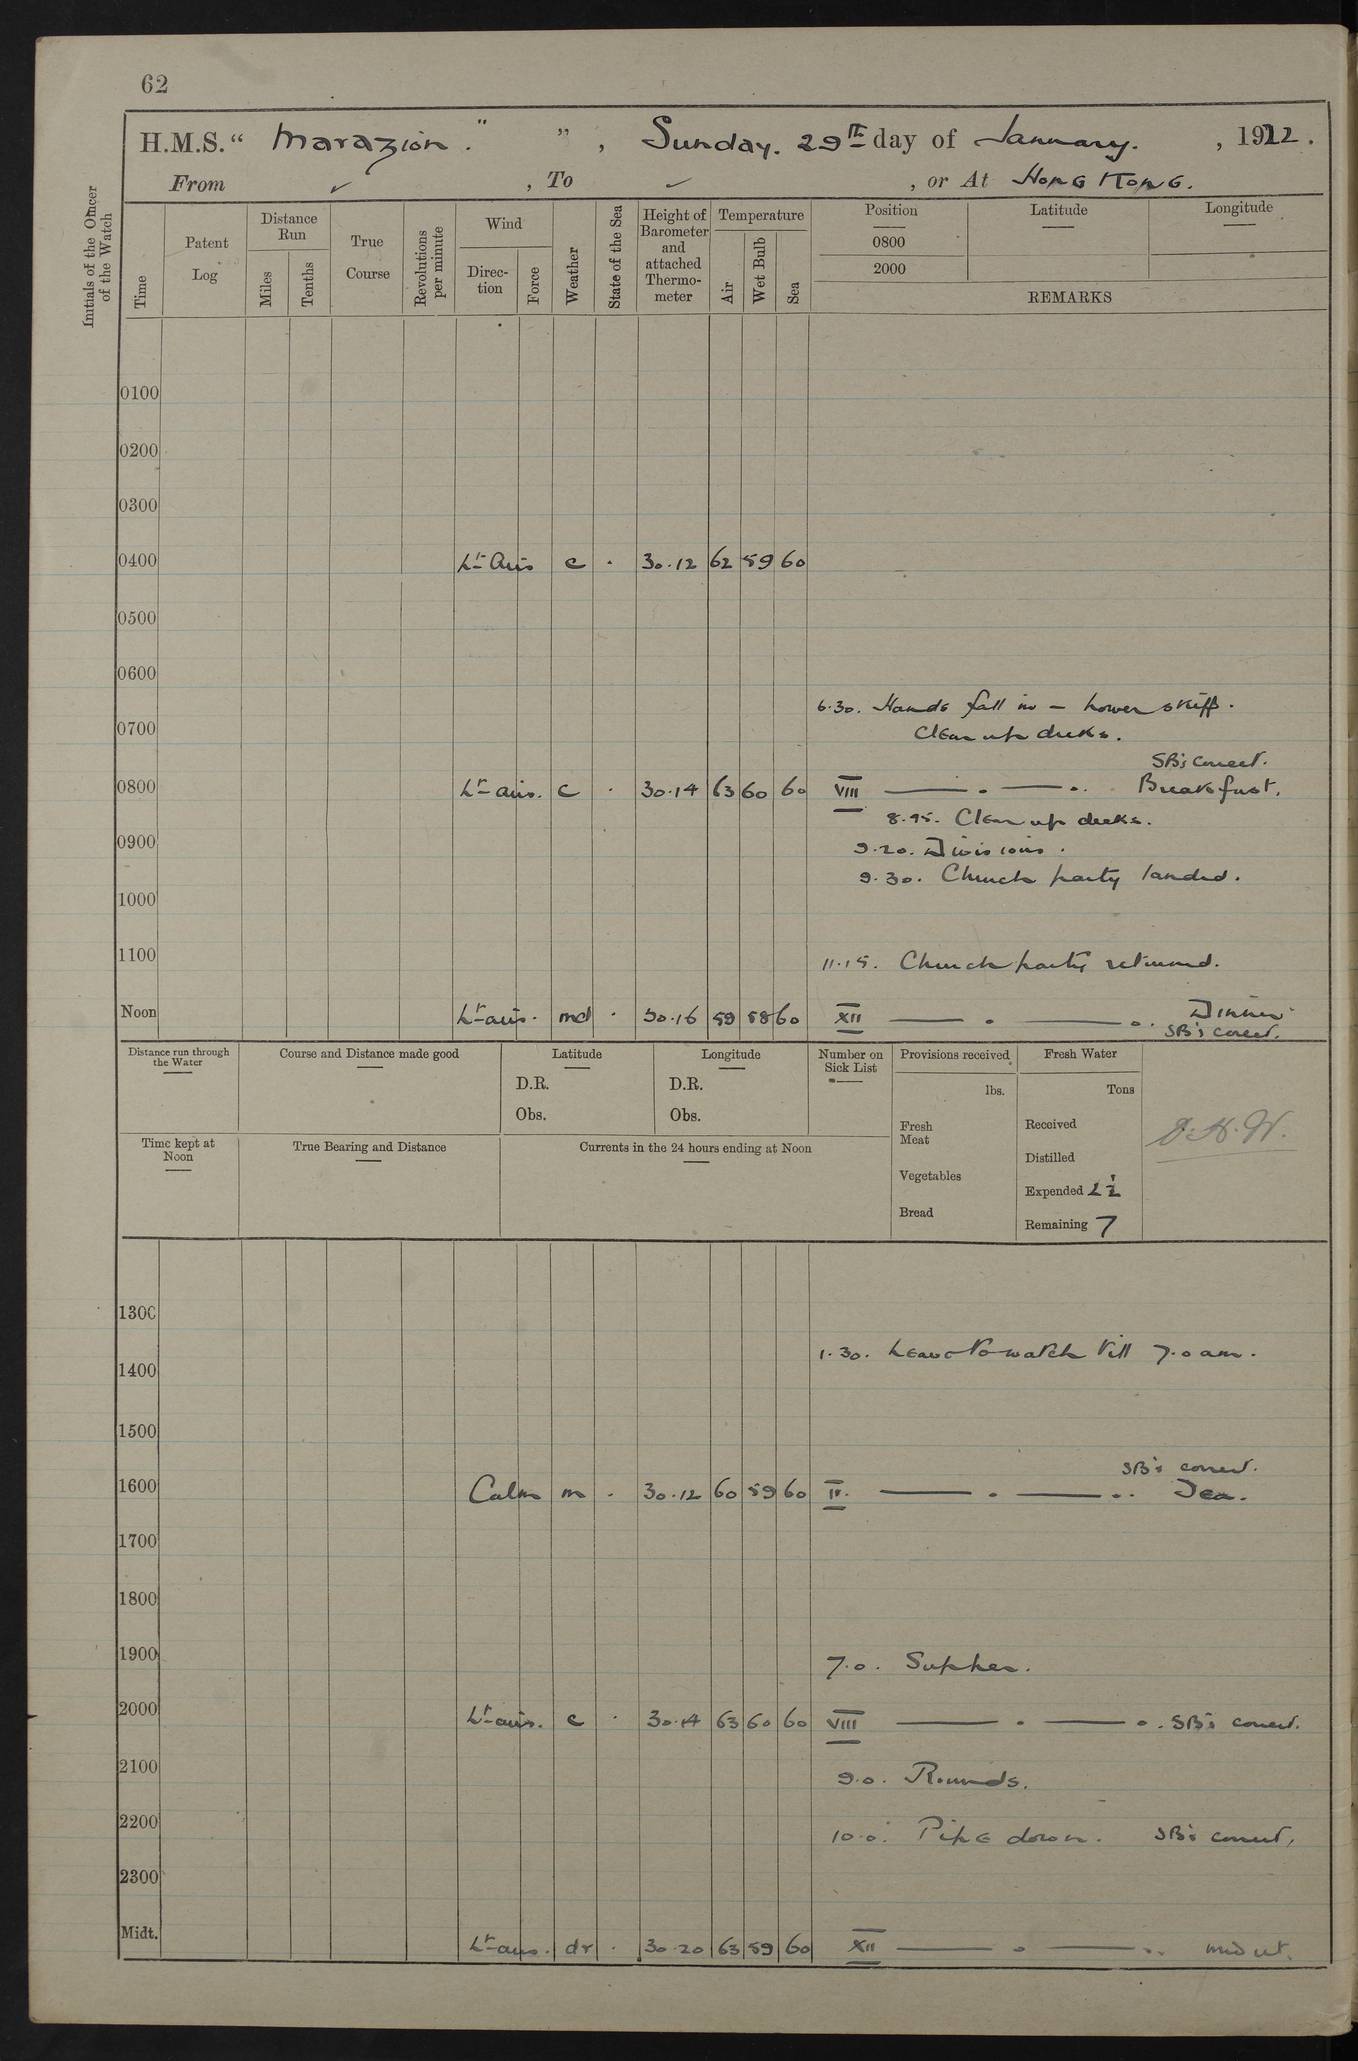 62
H.M.S. “ Marazion. ” ” , Sunday. 29th day of January. , 1922.
From ✓ , To ✓ , or At Hong Kong.
Initials of the Officer of the Watch
Time
Patent Log
Distance Run
Miles
Tenths
True Course
Revolutions per minute
Wind
Direc-tion
Force
Weather
State of the Sea
Height of Barometer and attached Thermo-meter
Temperature
Air
Wet Bulb
Sea
Position
0800
2000
Latitude
Longitude
REMARKS
0100
0200
0300
0400 Lt Airs c . 30.12 62 59 60
0500
0600
6.30. Hands fall in – Lower skiff.
0700 Clean up decks.
SB's correct.
0800 Lt airs. c . 30.14 63 60 60 VIII Breakfast.
8.45. Clean up decks.
0900 9.20. Divisions.
9.30. Church party landed.
1000
1100 11.15. Church party returned.
Noon Lt airs. md . 30.16 59 58 60 XII Dinner.
SB's correct.
Distance run through the Water
Course and Distance made good
Latitude
D.R.
Obs.
Longitude
D.R.
Obs.
Number on Sick List
Provisions received
lbs.
Fresh Meat
Vegetables
Bread
Fresh Water
Tons
Received
Distilled
Expended 2½
Remaining 7
Time kept at Noon
True Bearing and Distance
Currents in the 24 hours ending at Noon
1300
1.30. Leave to watch till 7.0 am.
1400
1500
SB's correct.
1600 Calm m . 30.12 60 59 60 IV. Tea.
1700
1800
1900 7.0. Supper.
2000 Lt airs. c . 30.14 63 60 60 VIII SB's correct.
2100 9.0. Rounds.
2200 10.0. Pipe down. SB's correct.
2300
Midt. Lt airs. dr . 30.20 63 59 60 XII